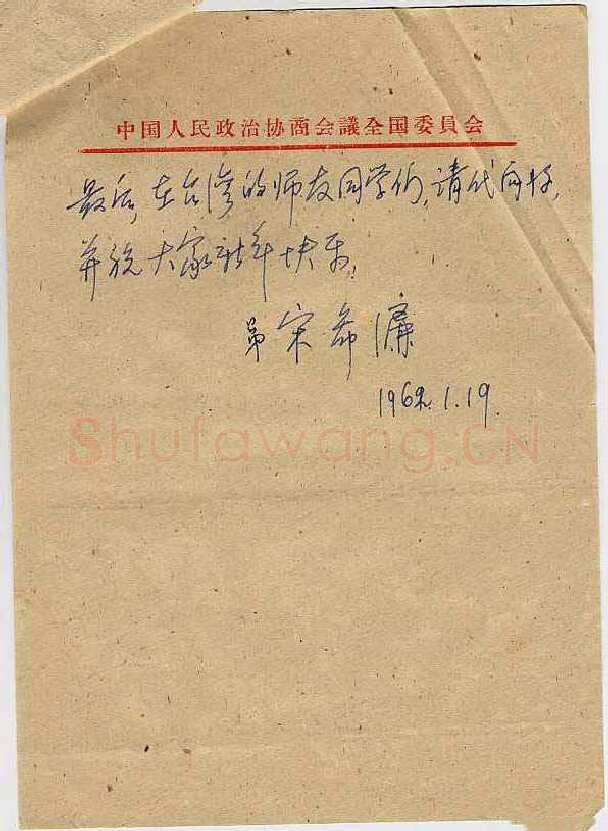 中国人民政治协商会議全国委員会
最后,在台湾的师友同学们,请代向好,
并祝大家新年快乐,
弟宋希濂
1962.1.19.
Shufawang.CN